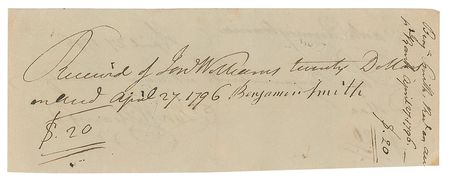 Received of Jonⁿ Williams twenty Dollars
on accᵗ April 27. 1796 Benjamin Smith
$. 20
Benj Smith
April 27. 1796 —
$. 20